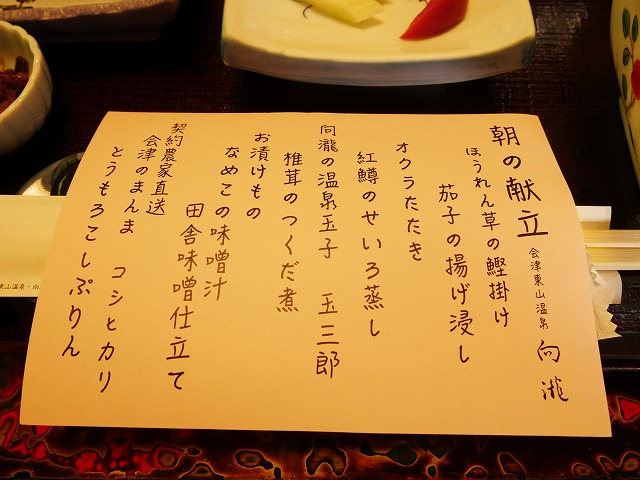 朝の献立
会津東山温泉 向瀧
ほうれん草の鰹掛け
茄子の揚げ浸し
オクラたたき
紅鱒のせいろ蒸し
向瀧の温泉玉子 玉三郎
椎茸のつくだ煮
お漬けもの
なめこの味噌汁
田舎味噌仕立て
契約農家直送
会津のまんま コシヒカリ
とうもろこしぷりん
東山温泉・向